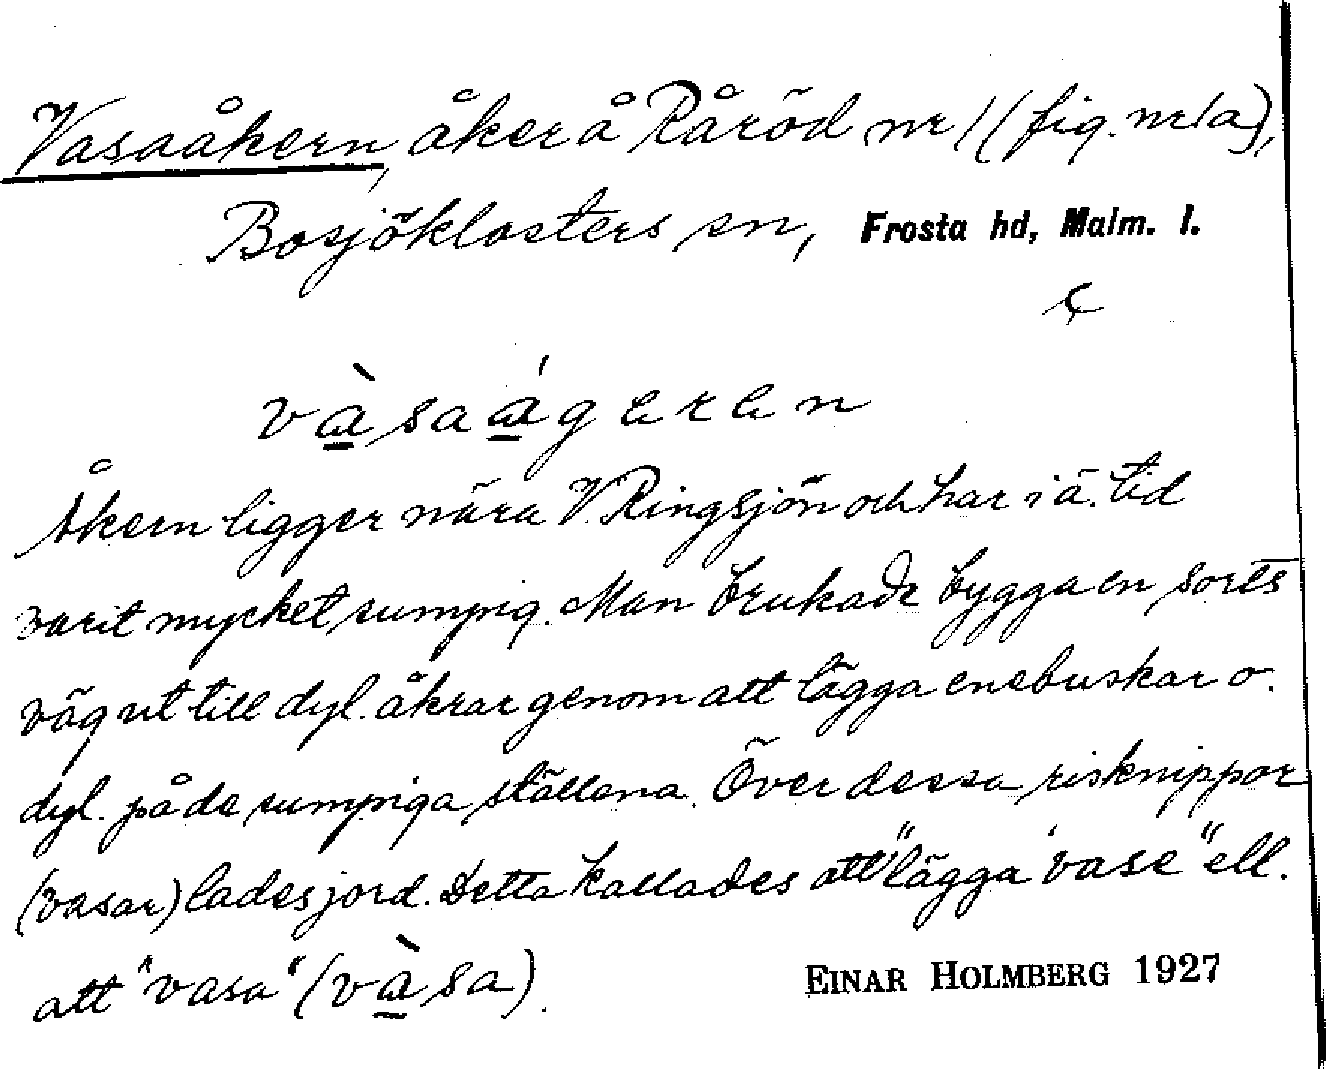 Vasaåkern, åker å Råröd nr 1 (fig. nr 1a),
Bosjöklosters sn, Frosta hd, Malm. l.
và̱saá̱geren
Åkern ligger nära V. Ringsjön och har i ä. tid
varit mycket sumpig. Man brukade bygga en sorts
väg ut till dyl. åkrar genom att lägga enebuskar o.
dyl. på de sumpiga ställena. Över dessa risknippor
(vasar) lades jord. Detta kallades att "lägga vase" ell.
att "vasa" (và̱sa).
EINAR HOLMBERG 1927